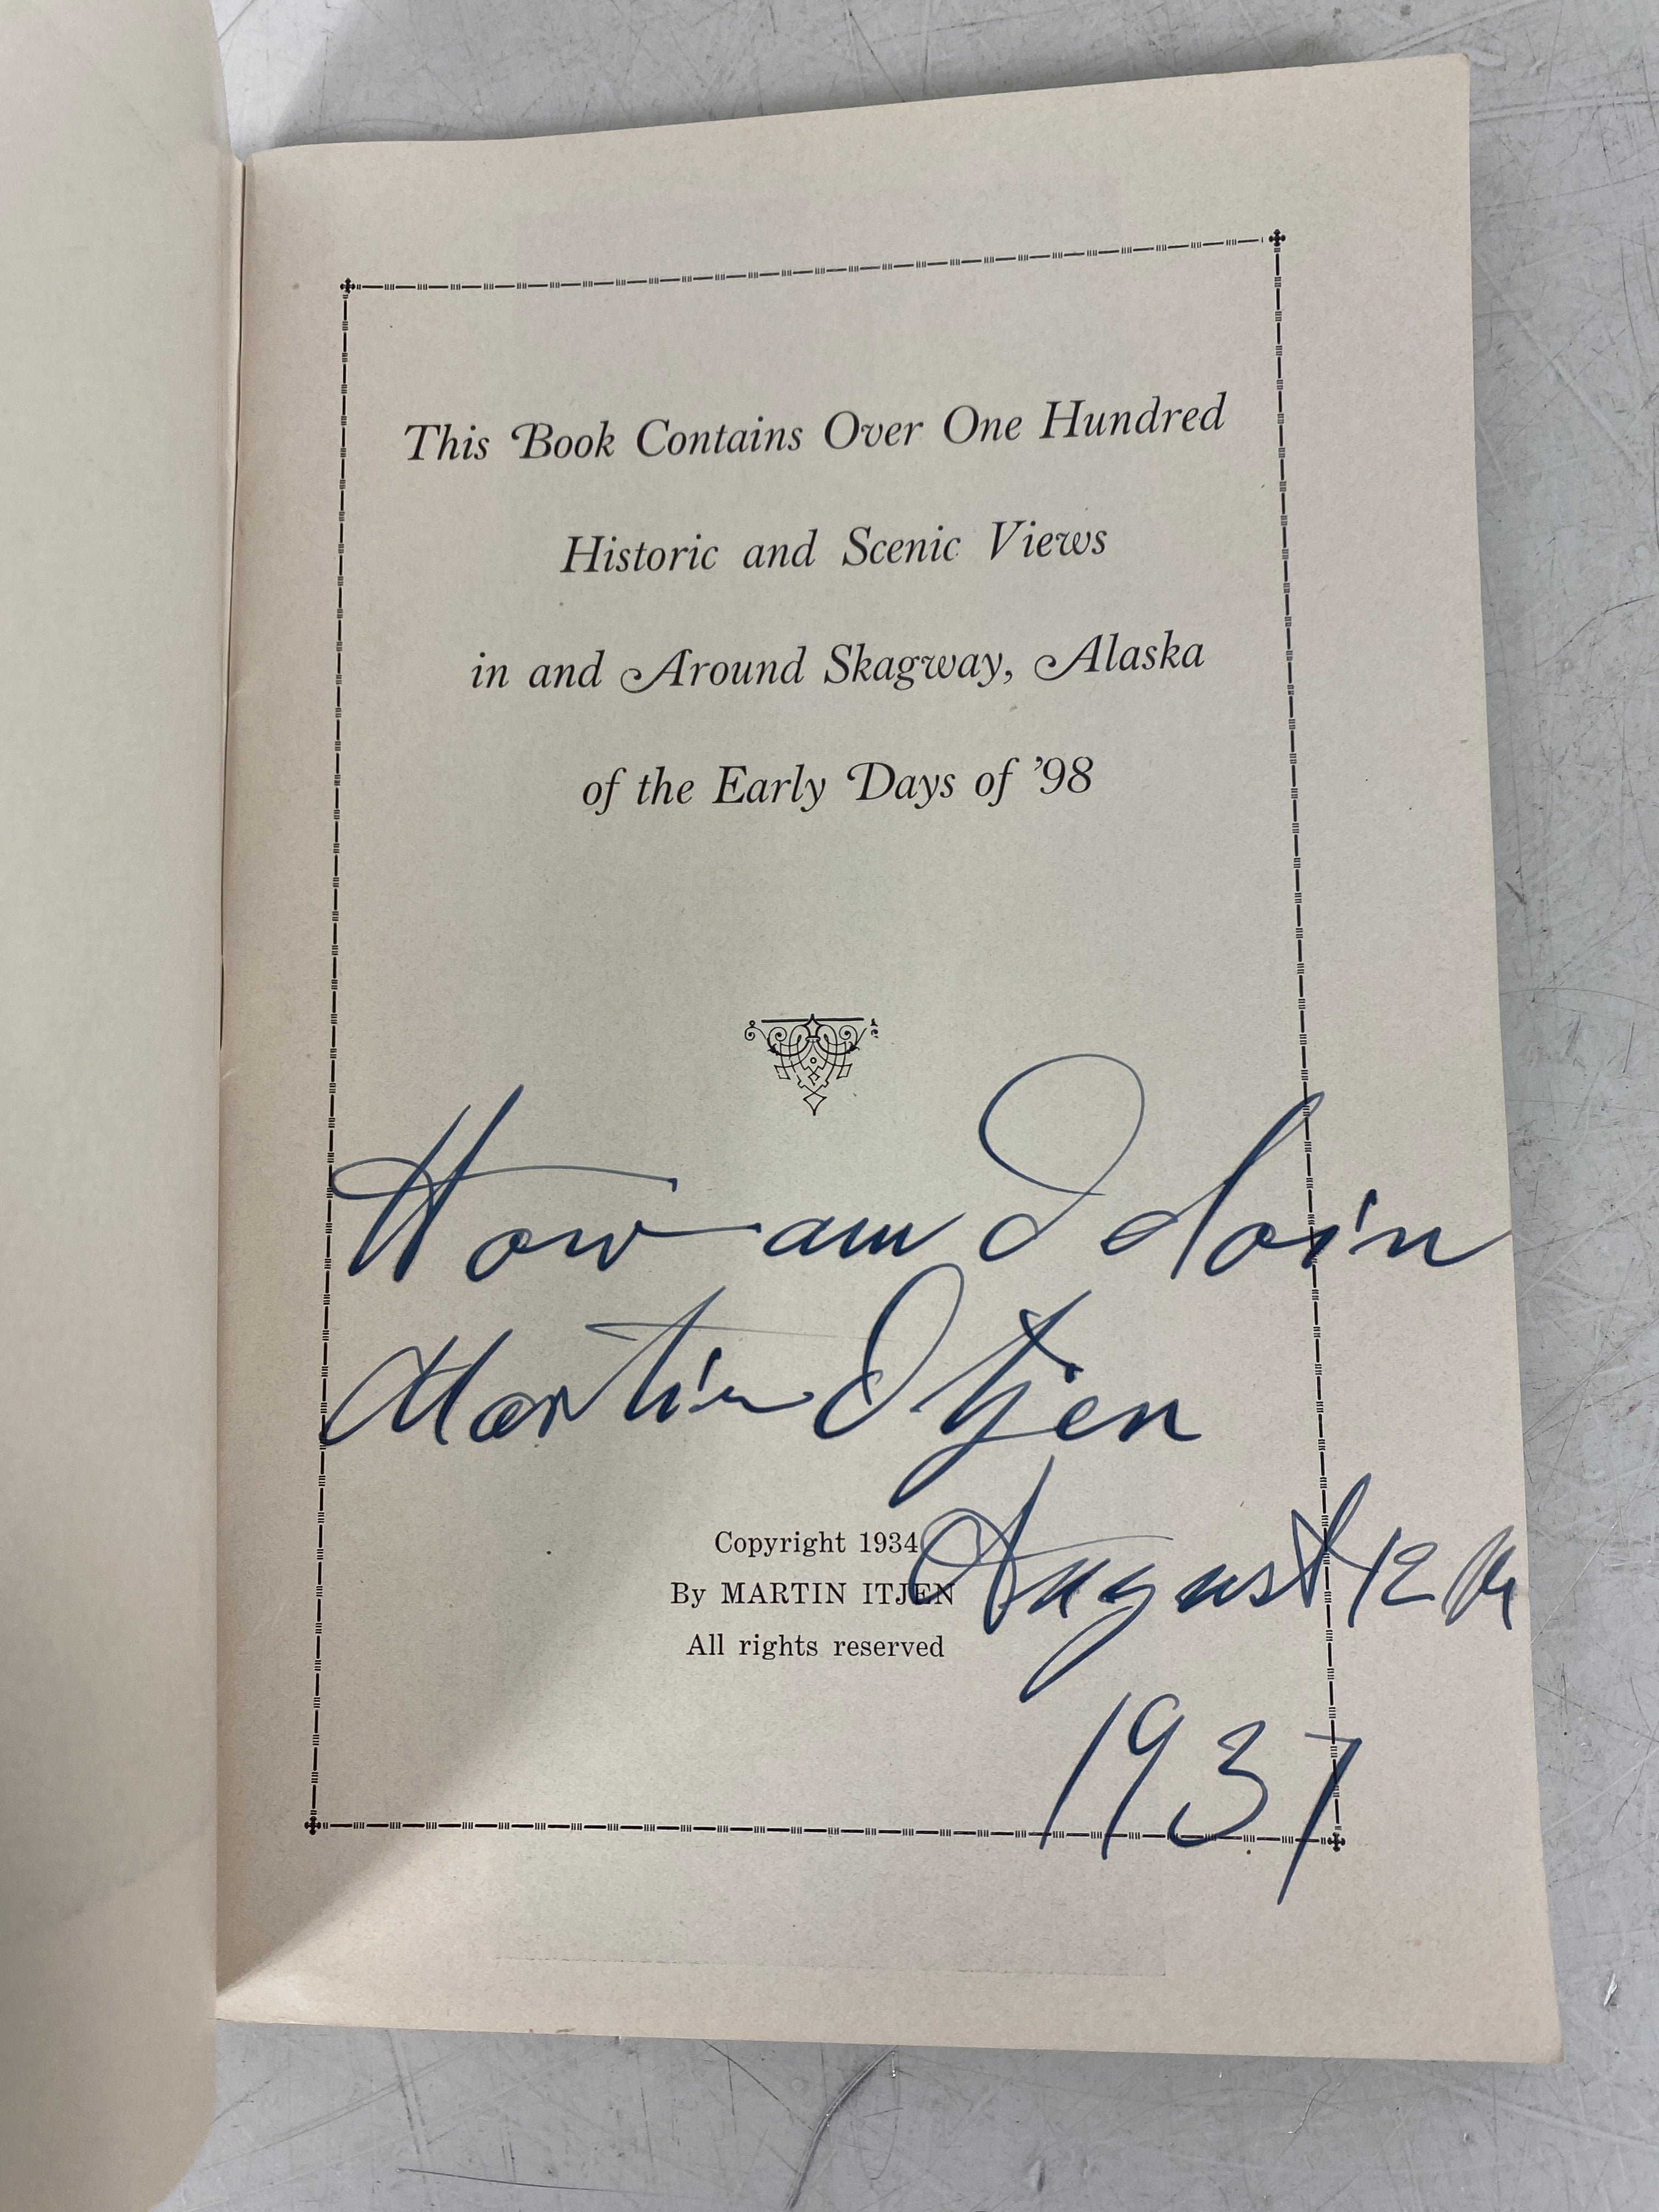 This Book Contains Over One Hundred
Historic and Scenic Views
in and Around Skagway, Alaska
of the Early Days of '98
How am I doin
Martin Itjen
Copyright 1934
By MARTIN ITJEN
All rights reserved
August 12 th
1937